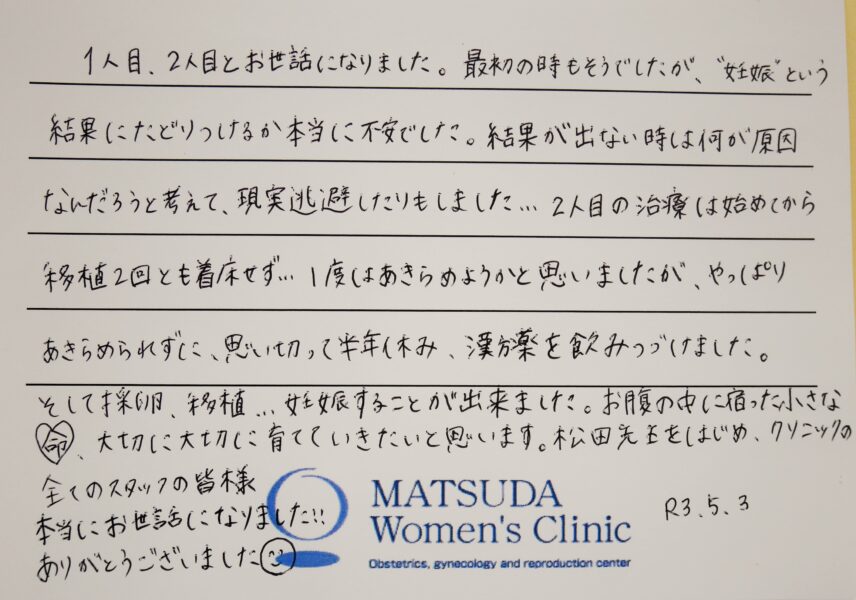 1人目、2人目とお世話になりました。最初の時もそうでしたが、"妊娠"という
結果にたどりつけるか本当に不安でした。結果が出ない時は何が原因
なんだろうと考えて、現実逃避したりもしました… 2人目の治療は始めてから
移植2回とも着床せず… 1度はあきらめようかと思いましたが、やっぱり
あきらめられずに、思い切って半年休み、漢方薬を飲みつづけました。
そして採卵、移植… 妊娠することが出来ました。お腹の中に宿った小さな
命、大切に大切に育てていきたいと思います。松田先生をはじめ、クリニックの
全てのスタッフの皆様
本当にお世話になりました!!
ありがとうございました
MATSUDA
Women's Clinic
Obstetrics, gynecology and reproduction center
R3.5.3